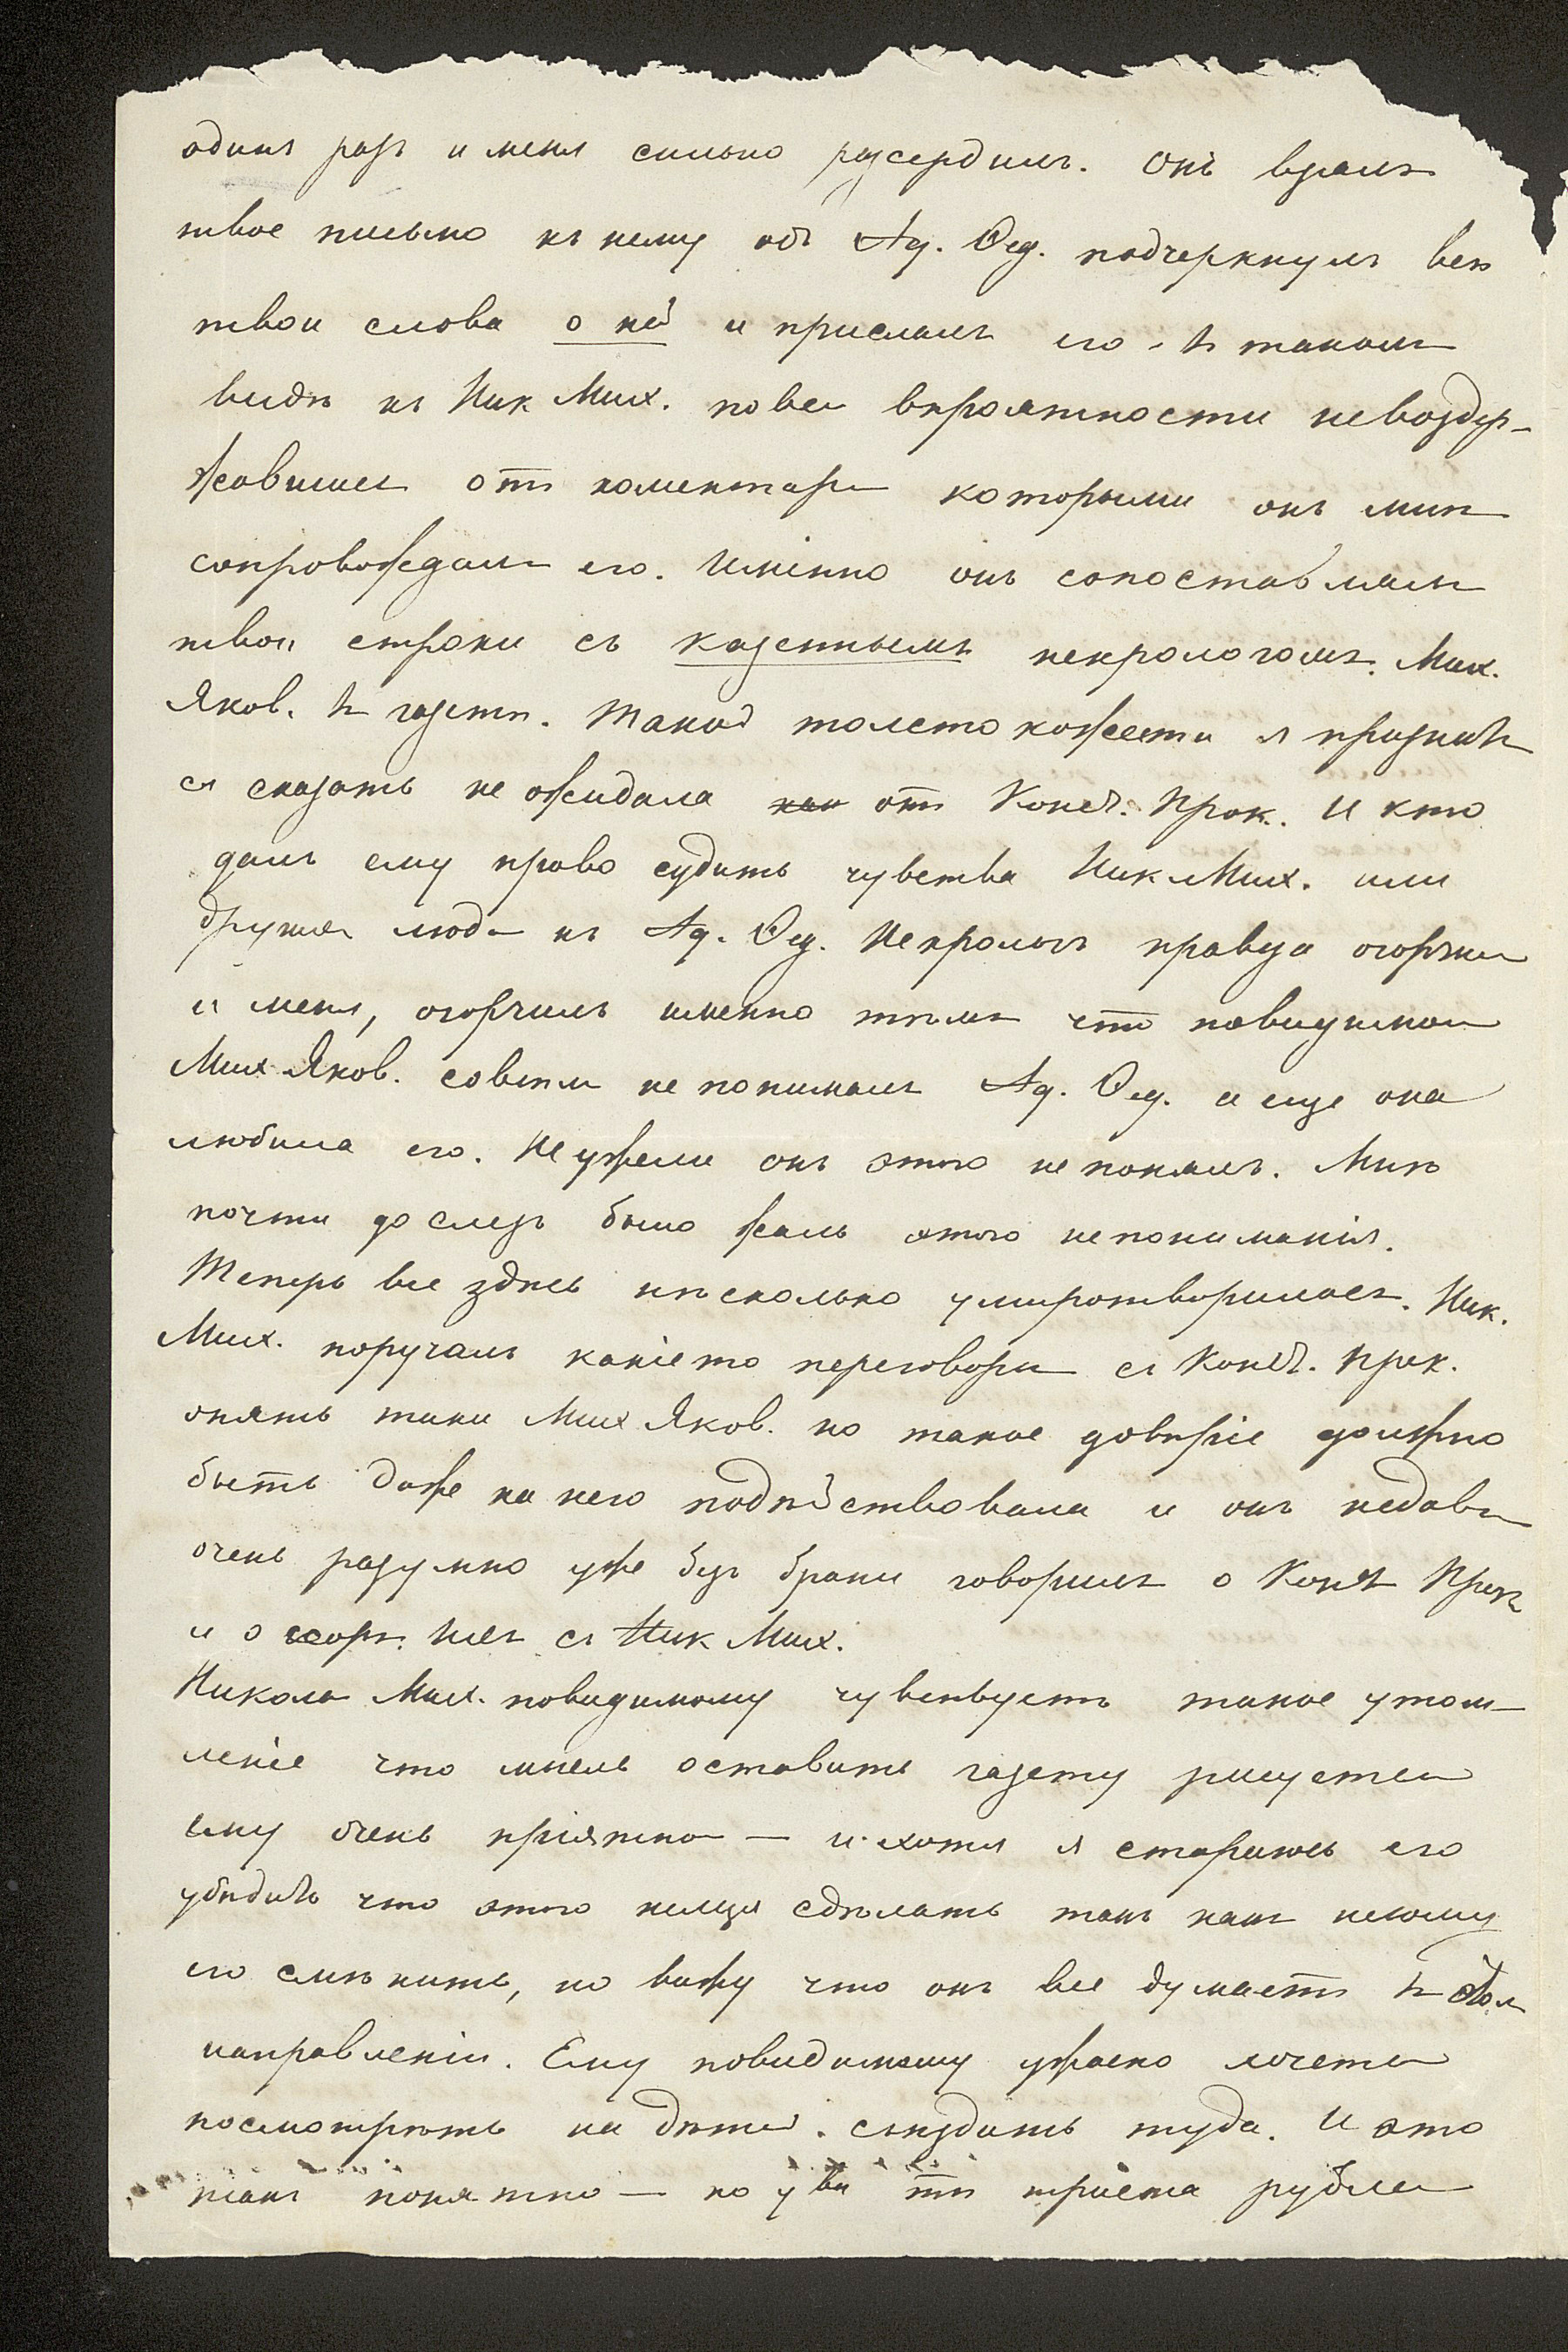 одинъ разъ и меня сильно разсердилъ. Онъ взялъ
твое письмо къ нему объ Ад. Фед. подчеркнулъ всѣ
твои слова о ней и прислалъ его въ такомъ
видѣ къ Ник Мих. по всей вѣроятности невоздер-
жавшись отъ коментарій которыми онъ мнѣ
сопровождалъ его. Имѣнно онъ сопоставлялъ
твои строки съ казеннымъ некрологомъ. Мих.
Яков. въ газетѣ. Такой толстокожести я признать
ся сказать не ожидала отъ Конст. Прок. И кто
далъ ему право судить чувства Ник Мих. или
другихъ людей къ Ад. Фед. Некрологъ правда огорчилъ
и меня, огорчилъ именно тѣмъ что повидимому
Мих Яков. совсѣмъ не понималъ Ад. Фед. а еще она
любила его. Неужели онъ этого не понялъ. Мнѣ
почти до слезъ было жаль этого непониманія.
Теперь все здѣсь нѣсколько умиротворилось. Ник.
Мих. поручалъ какіето переговоры съ Конст. Прок.
опять таки Мих Яков. но такое довѣріе должно
быть даже на него подѣйствовала и онъ недавно
очень разумно уже безъ брани говорилъ о Конст Прок
и о съ Ник Мих.
Никола Мих. повидимому чувствуетъ такое утом-
леніе что мысль оставить газету рисуется
ему очень пріятно — и хотя я стараюсь его
убѣдить что этого нельзя сдѣлать такъ какъ некому
его смѣнить, но вижу что онъ все думаетъ въ этом
направленіи. Ему повидимому ужасно хочется
посмотрѣть на дѣтей. съѣздить туда. И это
такъ понятно — но увы тѣ триста рублей